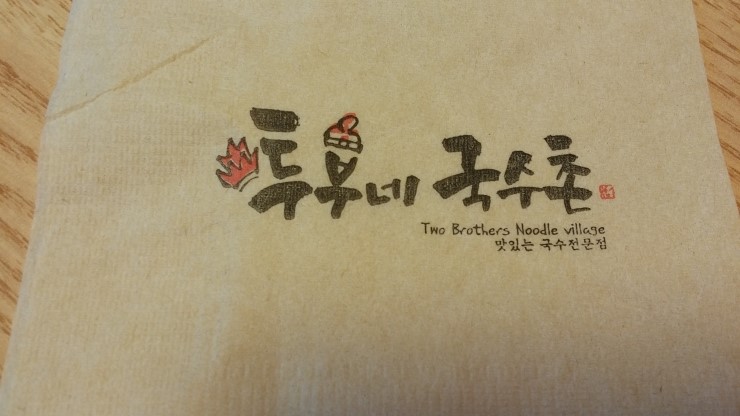 투부네 국수촌
Two Brothers Noodle village
맛있는 국수전문점